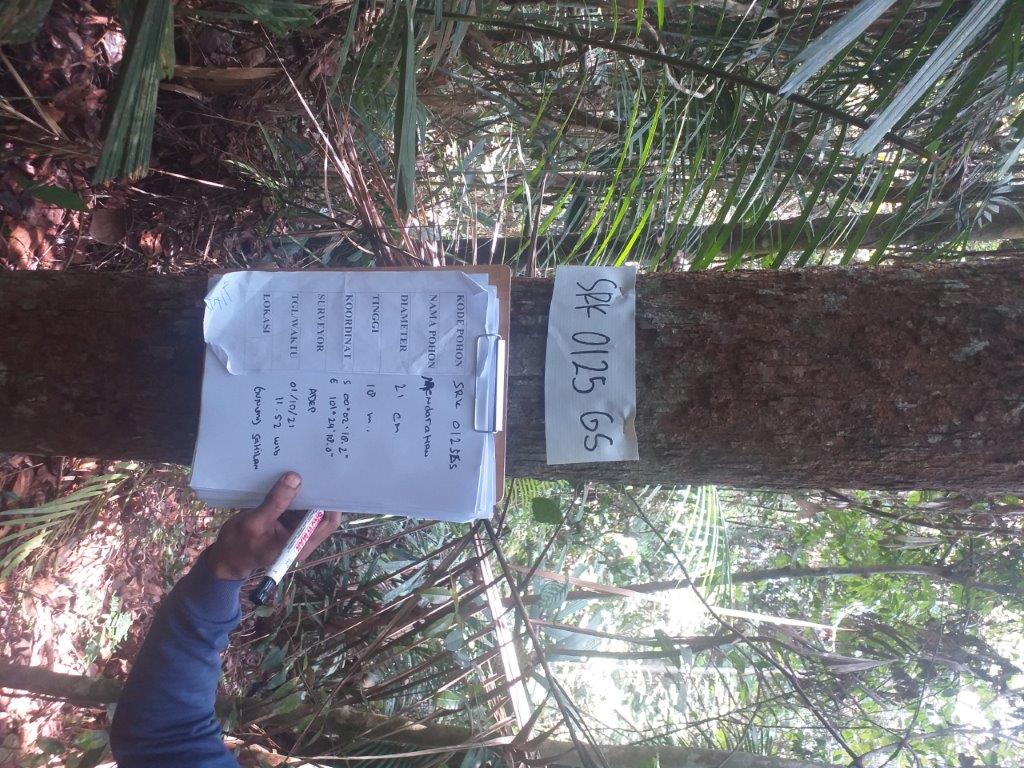 SRK 0125 GS
KODE POHON SRK 0125GS
NAMA POHON Mendarahan
DIAMETER 21 cm
TINGGI 18 m.
KOORDINAT S 00°02'18.2"
E 101°24'18.0"
SURVEYOR ADEP
TGL/WAKTU 01/10/21
11.52 WIB
LOKASI Gunung Sahilan
SNOWMAN